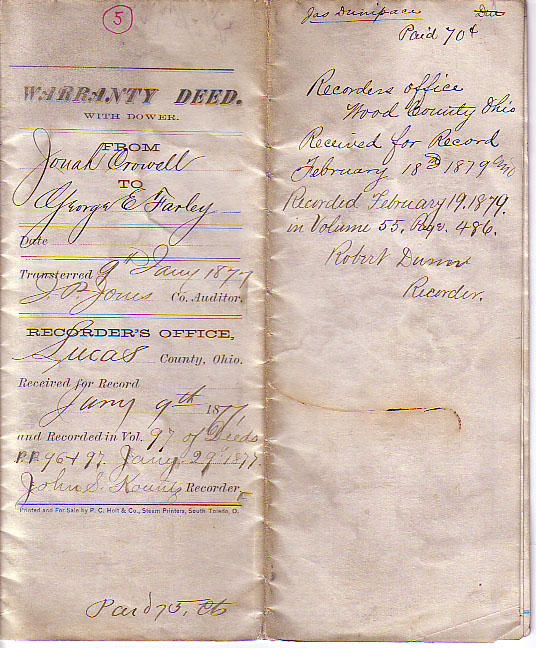 5
WARRANTY DEED.
WITH DOWER.
FROM
Jonah Crowell
TO
George E Farley
Date
Transferred 9th Jany 1877
J. P. Jones Co. Auditor.
RECORDER'S OFFICE,
Lucas County, Ohio.
Received for Record
Jany 9th 1877
and Recorded in Vol. 97 of Deeds
P.P. 96 & 97. Jany 29th 1877.
John S. Kountz Recorder.
Printed and For Sale by P. C. Holt & Co., Steam Printers, South Toledo, O.
Paid 75, Cts
Jas Dunipace
Paid 70¢
Recorders office
Wood County Ohio
Received for Record
February 18th 1879
Recorded February 19. 1879.
in Volume 55, Page. 486.
Robert Dunn
Recorder.